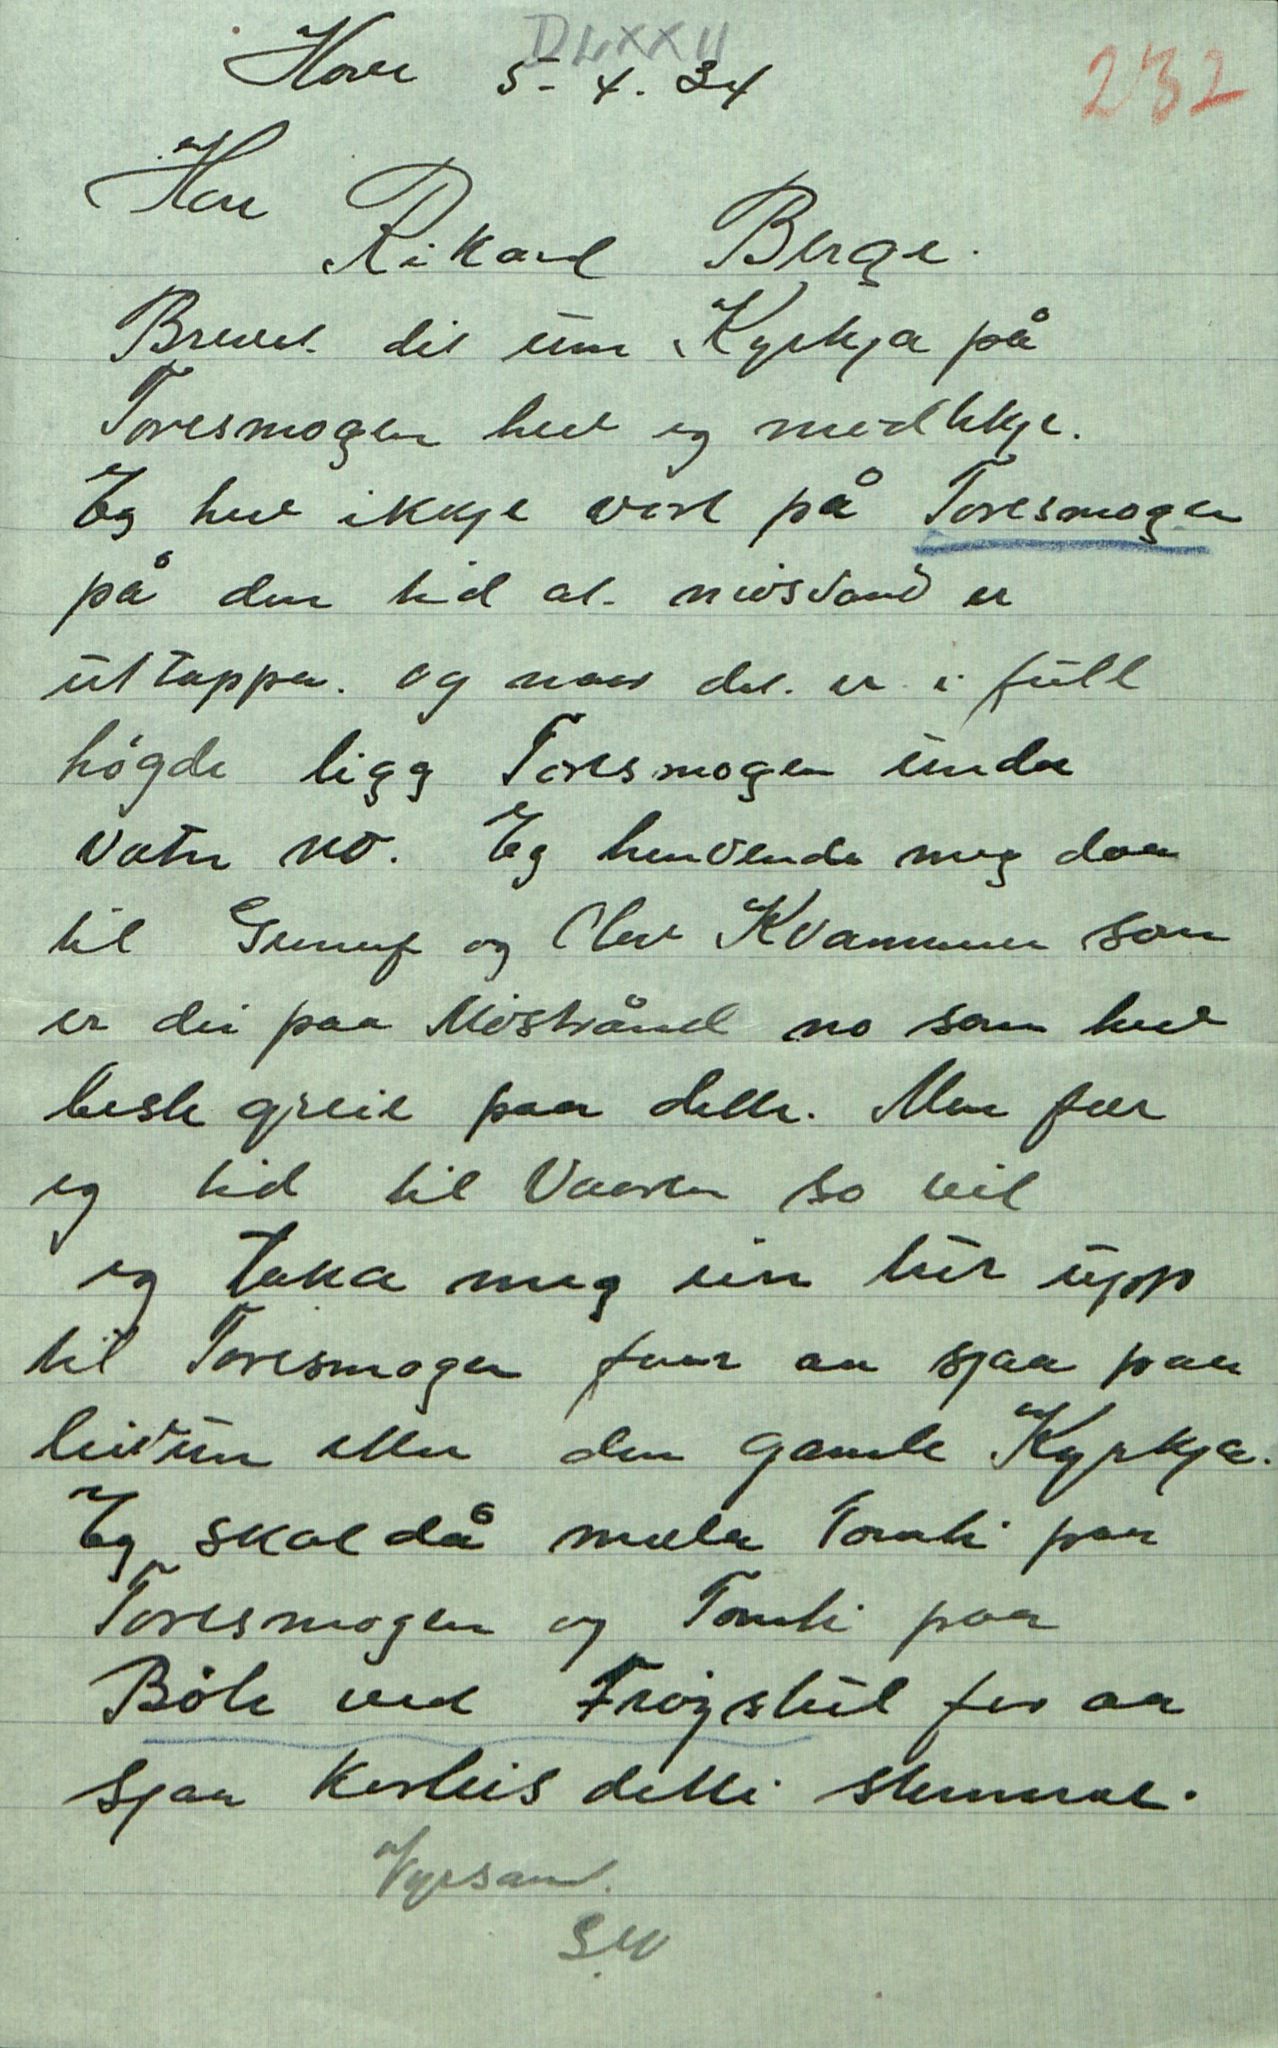 DLXXII
Hovi 5-4.34
232
Herr
Rikard Berge.
Brevet dit um Kyrkja på
Toresmogen hev eg medtekje.
Eg hev ikkje vori på Toresmogen
på den tid at miosvand er
uttappa. og naar det. er i full
högde ligg Toresmogen under
vatn no. Eg henvende meg daa
til Gunnuf og Olav Kvammen som
er dei paa Möstrånd no som hev
beste greie paa dette. Men fær
eg tid til Vaaren so vil
eg taka meg ein tur upp
til Toresmogen fuur aa sjaa paa
leivun etter den gamle Kyrkja.
Eg skal då mæla Tomti paa
Toresmogen og Tomti paa
Böle ved Fröystul for aa
sjaa korleis detti stemmar.
Vyrsamt.
S.M